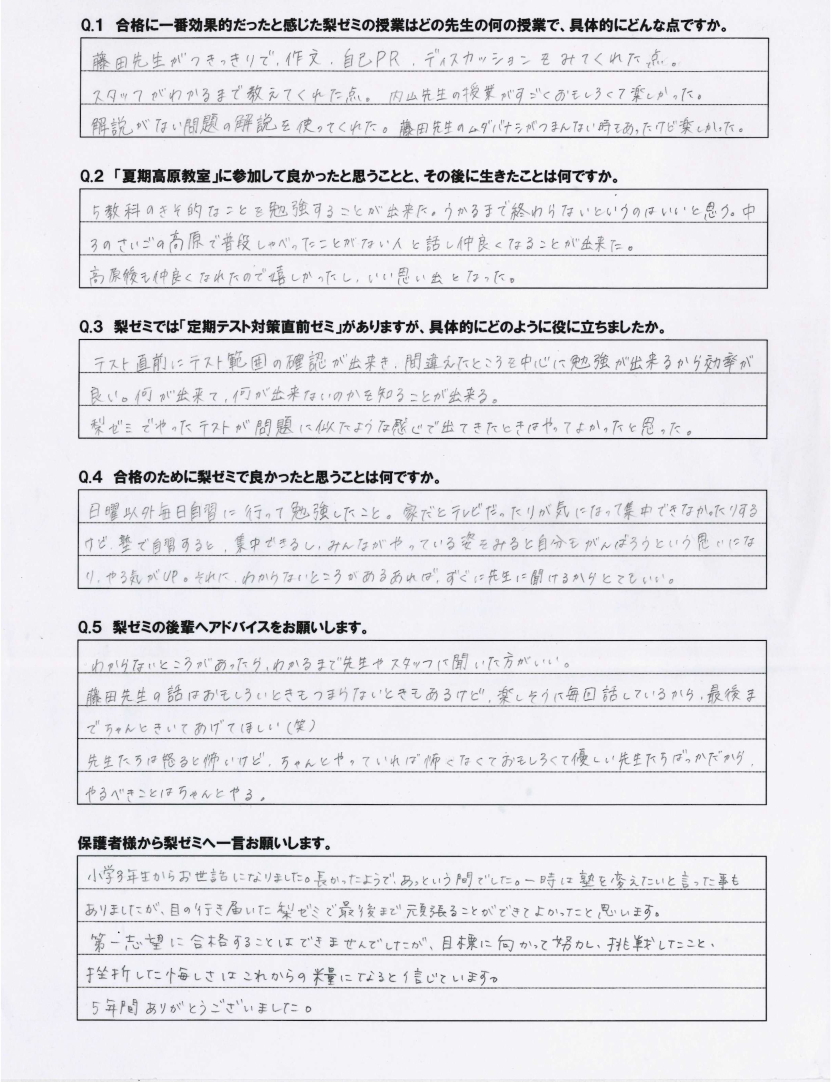 Q.1 合格に一番効果的だったと感じた梨ゼミの授業はどの先生の何の授業で、具体的にどんな点ですか。
藤田先生がつきっきりで、作文、自己PR、ディスカッションをみてくれた点。
スタッフがわかるまで教えてくれた点。内山先生の授業がすごくおもしろくて楽しかった。
解説がない問題の解説を使ってくれた。藤田先生のムダバナシがつまんない時もあったけど楽しかった。
Q.2 「夏期高原教室」に参加して良かったと思うことと、その後に生きたことは何ですか。
5教科のきそ的なことを勉強することが出来た。うかるまで終わらないというのはいいと思う。中
3のさいごの高原で普段しゃべったことがない人と話し仲良くなることが出来た。
高原後も仲良くなれたので嬉しかったし、いい思い出となった。
Q.3 梨ゼミでは「定期テスト対策直前ゼミ」がありますが、具体的にどのように役に立ちましたか。
テスト直前にテスト範囲の確認が出来き、間違えたところを中心に勉強が出来るから効率が
良い。何が出来て、何が出来ないのかを知ることが出来る。
梨ゼミでやったテストが問題に似たような感じで出てきたときはやってよかったと思った。
Q.4 合格のために梨ゼミで良かったと思うことは何ですか。
日曜以外毎日自習に行って勉強したこと。家だとテレビだったりが気になって集中できなかったりする
けど、塾で自習すると、集中できるし、みんながやっている姿をみると自分もがんばろうという思いにな
り、やる気がUP。それに、わからないところがあるあれば、すぐに先生に聞けるからとてもいい。
Q.5 梨ゼミの後輩へアドバイスをお願いします。
わからないところがあったら、わかるまで先生やスタッフに聞いた方がいい。
藤田先生の話はおもしろいときもつまらないときもあるけど、楽しそうに毎回話しているから、最後ま
でちゃんときいてあげてほしい(笑)
先生たちは怒ると怖いけど、ちゃんとやっていれば怖くなくておもしろくて優しい先生たちばっかだから、
やるべきことはちゃんとやる。
保護者様から梨ゼミへ一言お願いします。
小学3年生からお世話になりました。長かったようで、あっという間でした。一時は塾を変えたいと言った事も
ありましたが、目の行き届いた梨ゼミで最後まで頑張ることができてよかったと思います。
第一志望に合格することはできませんでしたが、目標に向かって努力し、挑戦したこと、
挫折した悔しさはこれからの糧になると信じています。
5年間ありがとうございました。